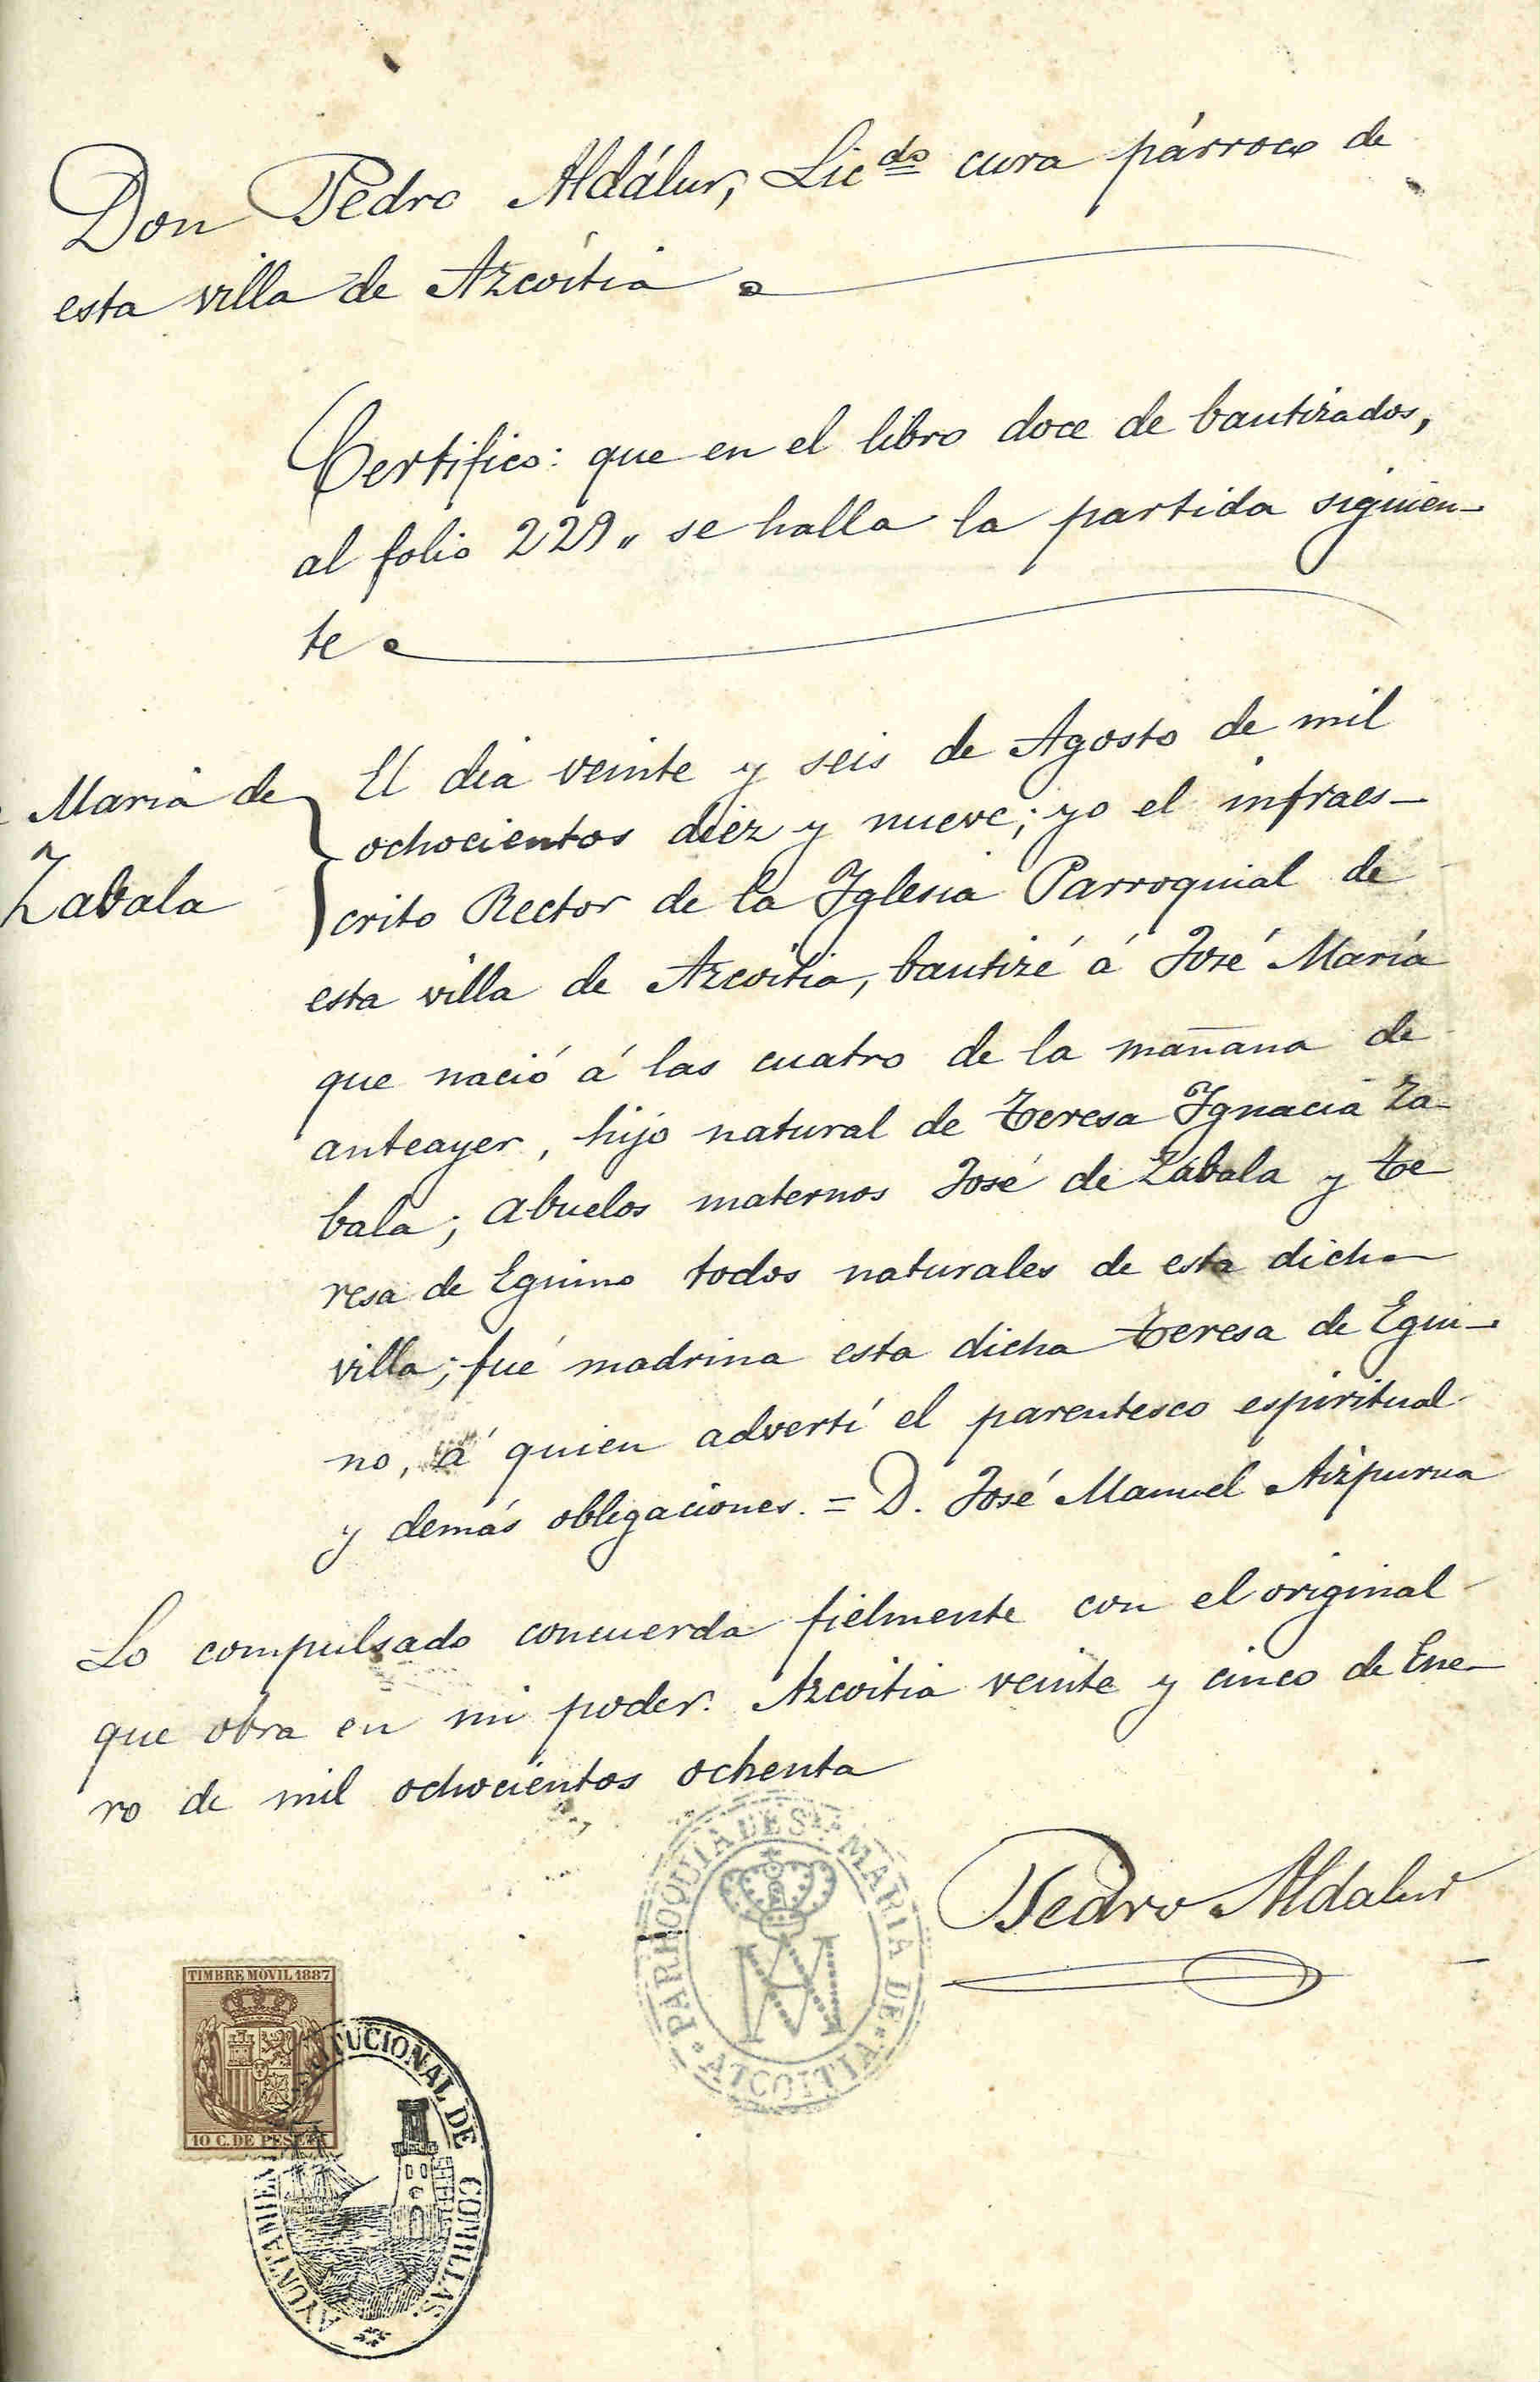 Don Pedro Aldálur, Lic.do cura párroco de
esta villa de Azcoitia
Certifico: que en el libro doce de bautizados,
al folio 229,, se halla la partida siguien-
te
María de
Zabala
El dia veinte y seis de Agosto de mil
ochocientos diez y nueve; yo el infraes-
crito Rector de la Iglesia Parroquial de
esta villa de Azcoitia, bauticé á José María
que nació á las cuatro de la mañana de
anteayer, hijo natural de Teresa Ignacia Za-
bala; abuelos maternos José de Zabala y Te-
resa de Eguino todos naturales de esta dicha
villa; fué madrina esta dicha Teresa de Egui-
no, á quien advertí el parentesco espiritual
y demás obligaciones. = D. José Manuel Aizpurua
Lo compulsado concuerda fielmente con el original
que obra en mi poder. Azcoitia veinte y cinco de Ene-
ro de mil ochocientos ochenta
Pedro Aldalur
PARROQUIA DE Sta MARIA DE AZCOITIA
TIMBRE MOVIL 1887
10 C. DE PESETA
AYUNTAMIEN TITUCIONAL DE COMILLAS